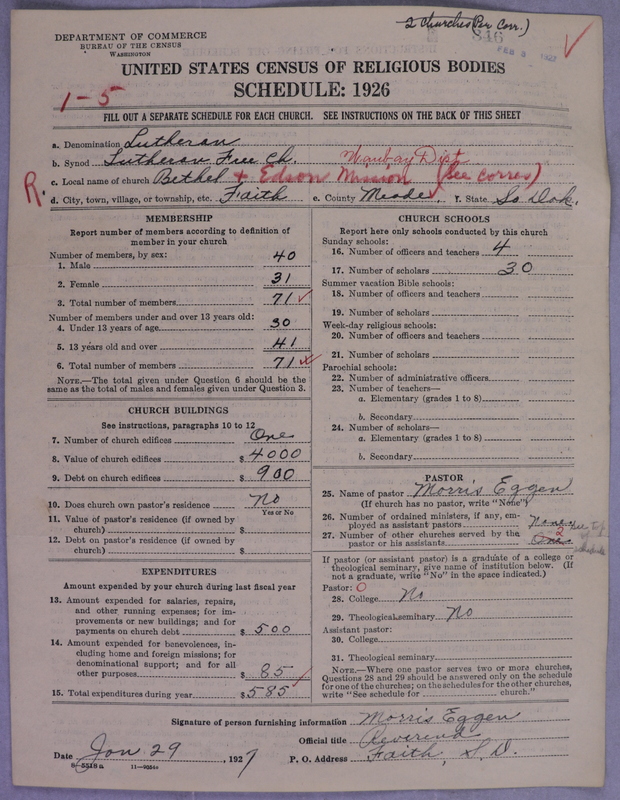 2 Churches (Per Corr.)
DEPARTMENT OF COMMERCE
BUREAU OF THE CENSUS
WASHINGTON
846
FEB 8 1927
UNITED STATES CENSUS OF RELIGIOUS BODIES
SCHEDULE: 1926
1-5
FILL OUT A SEPARATE SCHEDULE FOR EACH CHURCH. SEE INSTRUCTIONS ON THE BACK OF THIS SHEET
a. Denomination Lutheran
b. Synod Lutheran Free Ch. Waubay Dist
c. Local name of church Bethel + Edson Mission (See corres)
R.
d. City, town, village, or township, etc. Faith e. County Meade, f. State So Dak.
MEMBERSHIP
Report number of members according to definition of
member in your church
Number of members, by sex:
1. Male 40
2. Female 31
3. Total number of members 71
Number of members under and over 13 years old:
4. Under 13 years of age 30
5. 13 years old and over 41
6. Total number of members 71
NOTE.—The total given under Question 6 should be the
same as the total of males and females given under Question 3.
CHURCH BUILDINGS
See instructions, paragraphs 10 to 12
7. Number of church edifices One
8. Value of church edifices $4000
9. Debt on church edifices $900
10. Does church own pastor's residence No
Yes or No
11. Value of pastor's residence (if owned by
church) $
12. Debt on pastor's residence (if owned by
church) $
EXPENDITURES
Amount expended by your church during last fiscal year
13. Amount expended for salaries, repairs,
and other running expenses; for im-
provements or new buildings; and for
payments on church debt $500
14. Amount expended for benevolences, in-
cluding home and foreign missions; for
denominational support; and for all
other purposes $85
15. Total expenditures during year $585
CHURCH SCHOOLS
Report here only schools conducted by this church
Sunday schools:
16. Number of officers and teachers 4
17. Number of scholars 30
Summer vacation Bible schools:
18. Number of officers and teachers
19. Number of scholars
Week-day religious schools:
20. Number of officers and teachers
21. Number of scholars
Parochial schools:
22. Number of administrative officers
23. Number of teachers—
a. Elementary (grades 1 to 8)
b. Secondary
24. Number of scholars—
a. Elementary (grades 1 to 8)
b. Secondary
PASTOR
25. Name of pastor Morris Eggen
(If church has no pastor, write "None")
26. Number of ordained ministers, if any, em-
ployed as assistant pastors None
27. Number of other churches served by the
pastor or his assistants 2 One
See top of schedule
If pastor (or assistant pastor) is a graduate of a college or
theological seminary, give name of institution below. (If
not a graduate, write "No" in the space indicated.)
Pastor: O
28. College No
29. Theological seminary No
Assistant pastor:
30. College
31. Theological seminary
NOTE.—Where one pastor serves two or more churches,
Questions 28 and 29 should be answered only on the schedule
for one of the churches; on the schedules for the other churches,
write "See schedule for church."
Signature of person furnishing information Morris Eggen
Official title Reverend
Date Jan 29, 1927 P. O. Address Faith, S.D.
8-5518a 11-9054